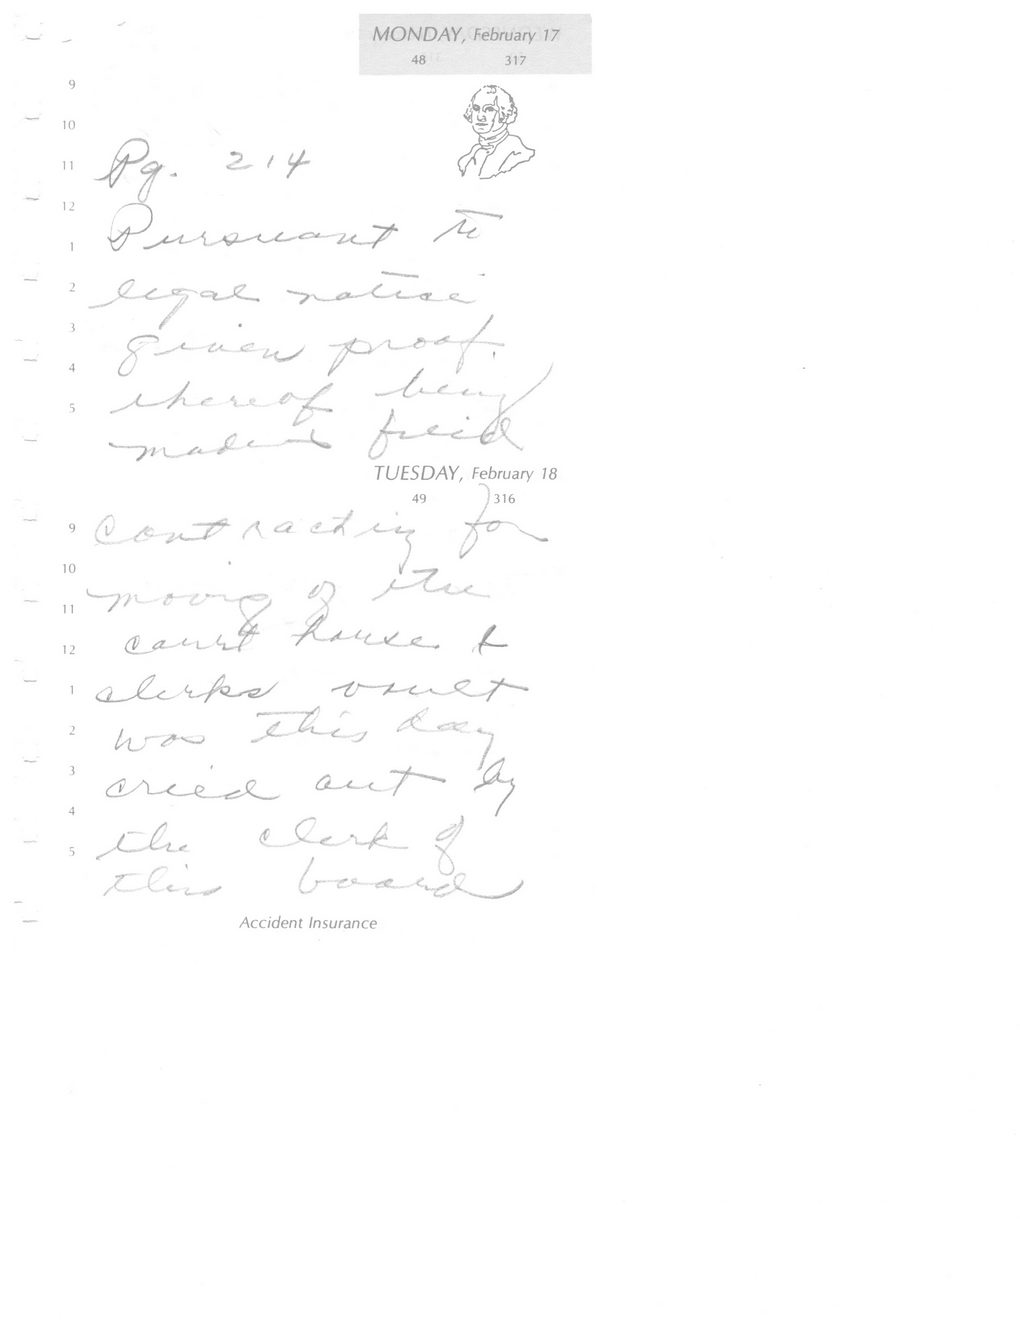 MONDAY, February 17
48 317
9
10
11 Pg. 214
12
Pursuant to
1
2 legal notice
3
given proof
4
thereof being
5
made
TUESDAY, February 18
49 316
9 contracting for
10
moving of the
11
court house &
12
1 clerks vault
2 was this day
3
cried out by
4
5 the clerk of
this board
Accident Insurance